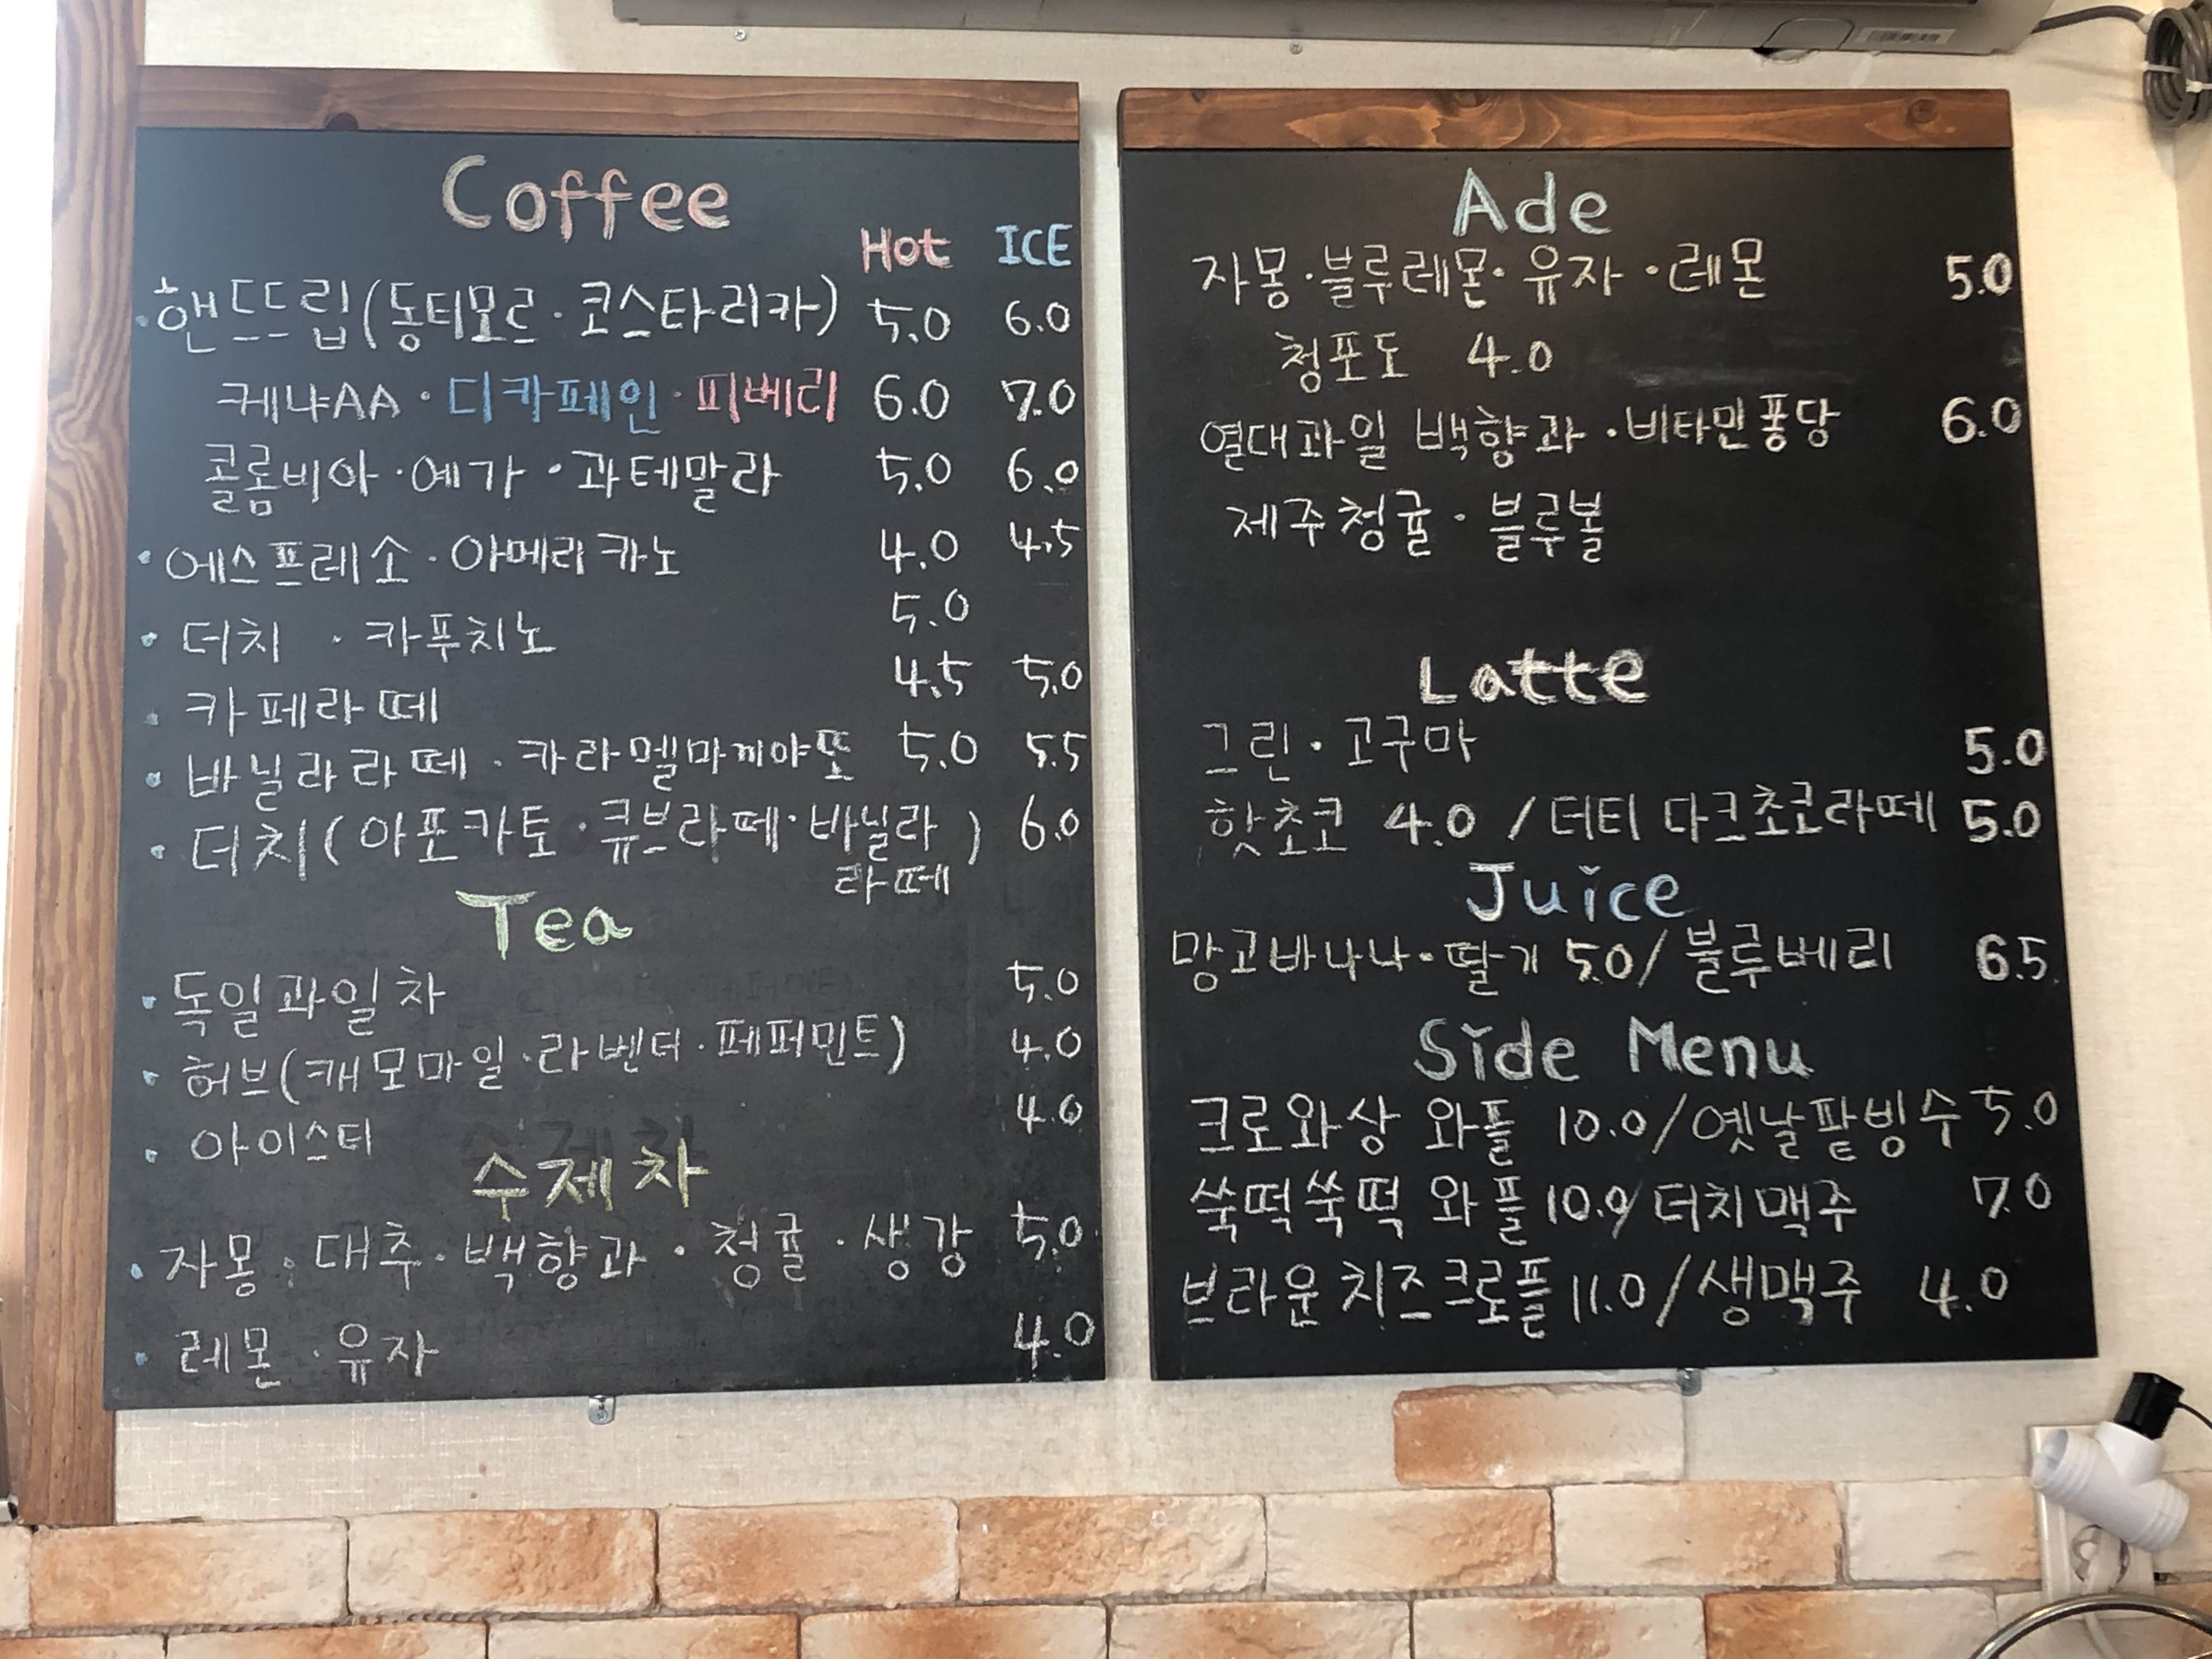 Coffee
Hot ICE
· 핸드드립(동티모르 · 코스타리카) 5.0 6.0
케냐AA · 디카페인 · 피베리 6.0 7.0
콜롬비아 · 예가 · 과테말라 5.0 6.0
· 에스프레소 · 아메리카노 4.0 4.5
· 더치 · 카푸치노 5.0
· 카페라떼 4.5 5.0
· 바닐라라떼 · 카라멜마끼야또 5.0 5.5
· 더치(아포카토 · 큐브라떼 · 바닐라 ) 6.0
라떼
Tea
· 독일과일차 5.0
· 허브(캐모마일 · 라벤더 · 페퍼민트) 4.0
· 아이스티 4.0
수제차
· 자몽 · 대추 · 백향과 · 청귤 · 생강 5.0
· 레몬 · 유자 4.0
Ade
자몽 · 블루레몬 · 유자 · 레몬 5.0
청포도 4.0
열대과일 백향과 · 비타민퐁당 6.0
제주청귤 · 블루볼
Latte
그린 · 고구마 5.0
핫초코 4.0 / 더티 다크초코라떼 5.0
Juice
망고바나나 · 딸기 5.0 / 블루베리 6.5
Side Menu
크로와상 와플 10.0 / 옛날팥빙수 5.0
쑥떡쑥떡 와플 10.0/ 더치맥주 7.0
브라운치즈크로플 11.0 / 생맥주 4.0